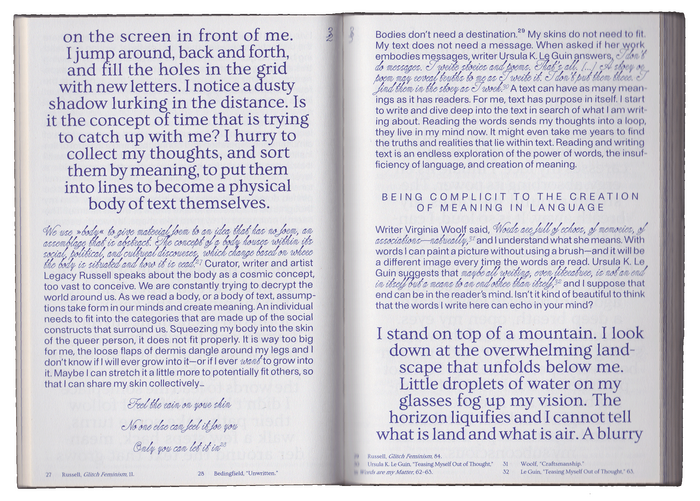 on the screen in front of me.
I jump around, back and forth,
and fill the holes in the grid
with new letters. I notice a dusty
shadow lurking in the distance. Is
it the concept of time that is trying
to catch up with me? I hurry to
collect my thoughts, and sort
them by meaning, to put them
into lines to become a physical
body of text themselves.
We use »body« to give material form to an idea that has no form, an
assemblage that is abstract. The concept of a body houses within its
social, political, and cultural discourses, which change based on where
the body is situated and how it is read.²⁷ Curator, writer and artist
Legacy Russell speaks about the body as a cosmic concept,
too vast to conceive. We are constantly trying to decrypt the
world around us. As we read a body, or a body of text, assump-
tions take form in our minds and create meaning. An individual
needs to fit into the categories that are made up of the social
constructs that surround us. Squeezing my body into the skin
of the queer person, it does not fit properly. It is way too big
for me, the loose flaps of dermis dangle around my legs and I
don't know if I will ever grow into it—or if I ever want to grow into
it. Maybe I can stretch it a little more to potentially fit others, so
that I can share my skin collectively…
Feel the rain on your skin
No one else can feel it for you
Only you can let it in²⁸
27 Russell, Glitch Feminism, 11. 28 Bedingfield, "Unwritten."
Bodies don't need a destination.²⁹ My skins do not need to fit.
My text does not need a message. When asked if her work
embodies messages, writer Ursula K. Le Guin answers, I don't
do messages. I write stories and poems. That's all. [...] A story or
poem may reveal truths to me as I write it. I don't put them there. I
find them in the story as I work.³⁰ A text can have as many mean-
ings as it has readers. For me, text has purpose in itself. I start
to write and dive deep into the text in search of what I am writ-
ing about. Reading the words sends my thoughts into a loop,
they live in my mind now. It might even take me years to find
the truths and realities that lie within text. Reading and writing
text is an endless exploration of the power of words, the insuf-
ficiency of language, and creation of meaning.
BEING COMPLICIT TO THE CREATION
OF MEANING IN LANGUAGE
Writer Virginia Woolf said, Words are full of echoes, of memories, of
associations—naturally,³¹ and I understand what she means. With
words I can paint a picture without using a brush—and it will be
a different image every time the words are read. Ursula K. Le
Guin suggests that maybe all writing, even literature, is not an end
in itself but a means to an end other than itself,³² and I suppose that
end can be in the reader's mind. Isn't it kind of beautiful to think
that the words I write here can echo in your mind?
I stand on top of a mountain. I look
down at the overwhelming land-
scape that unfolds below me.
Little droplets of water on my
glasses fog up my vision. The
horizon liquifies and I cannot tell
what is land and what is air. A blurry
Russell, Glitch Feminism, 84.
Ursula K. Le Guin, "Teasing Myself Out of Thought," 31 Woolf, "Craftsmanship."
Words Are My Matter, 62–63. 32 Le Guin, "Teasing Myself Out of Thought," 63.